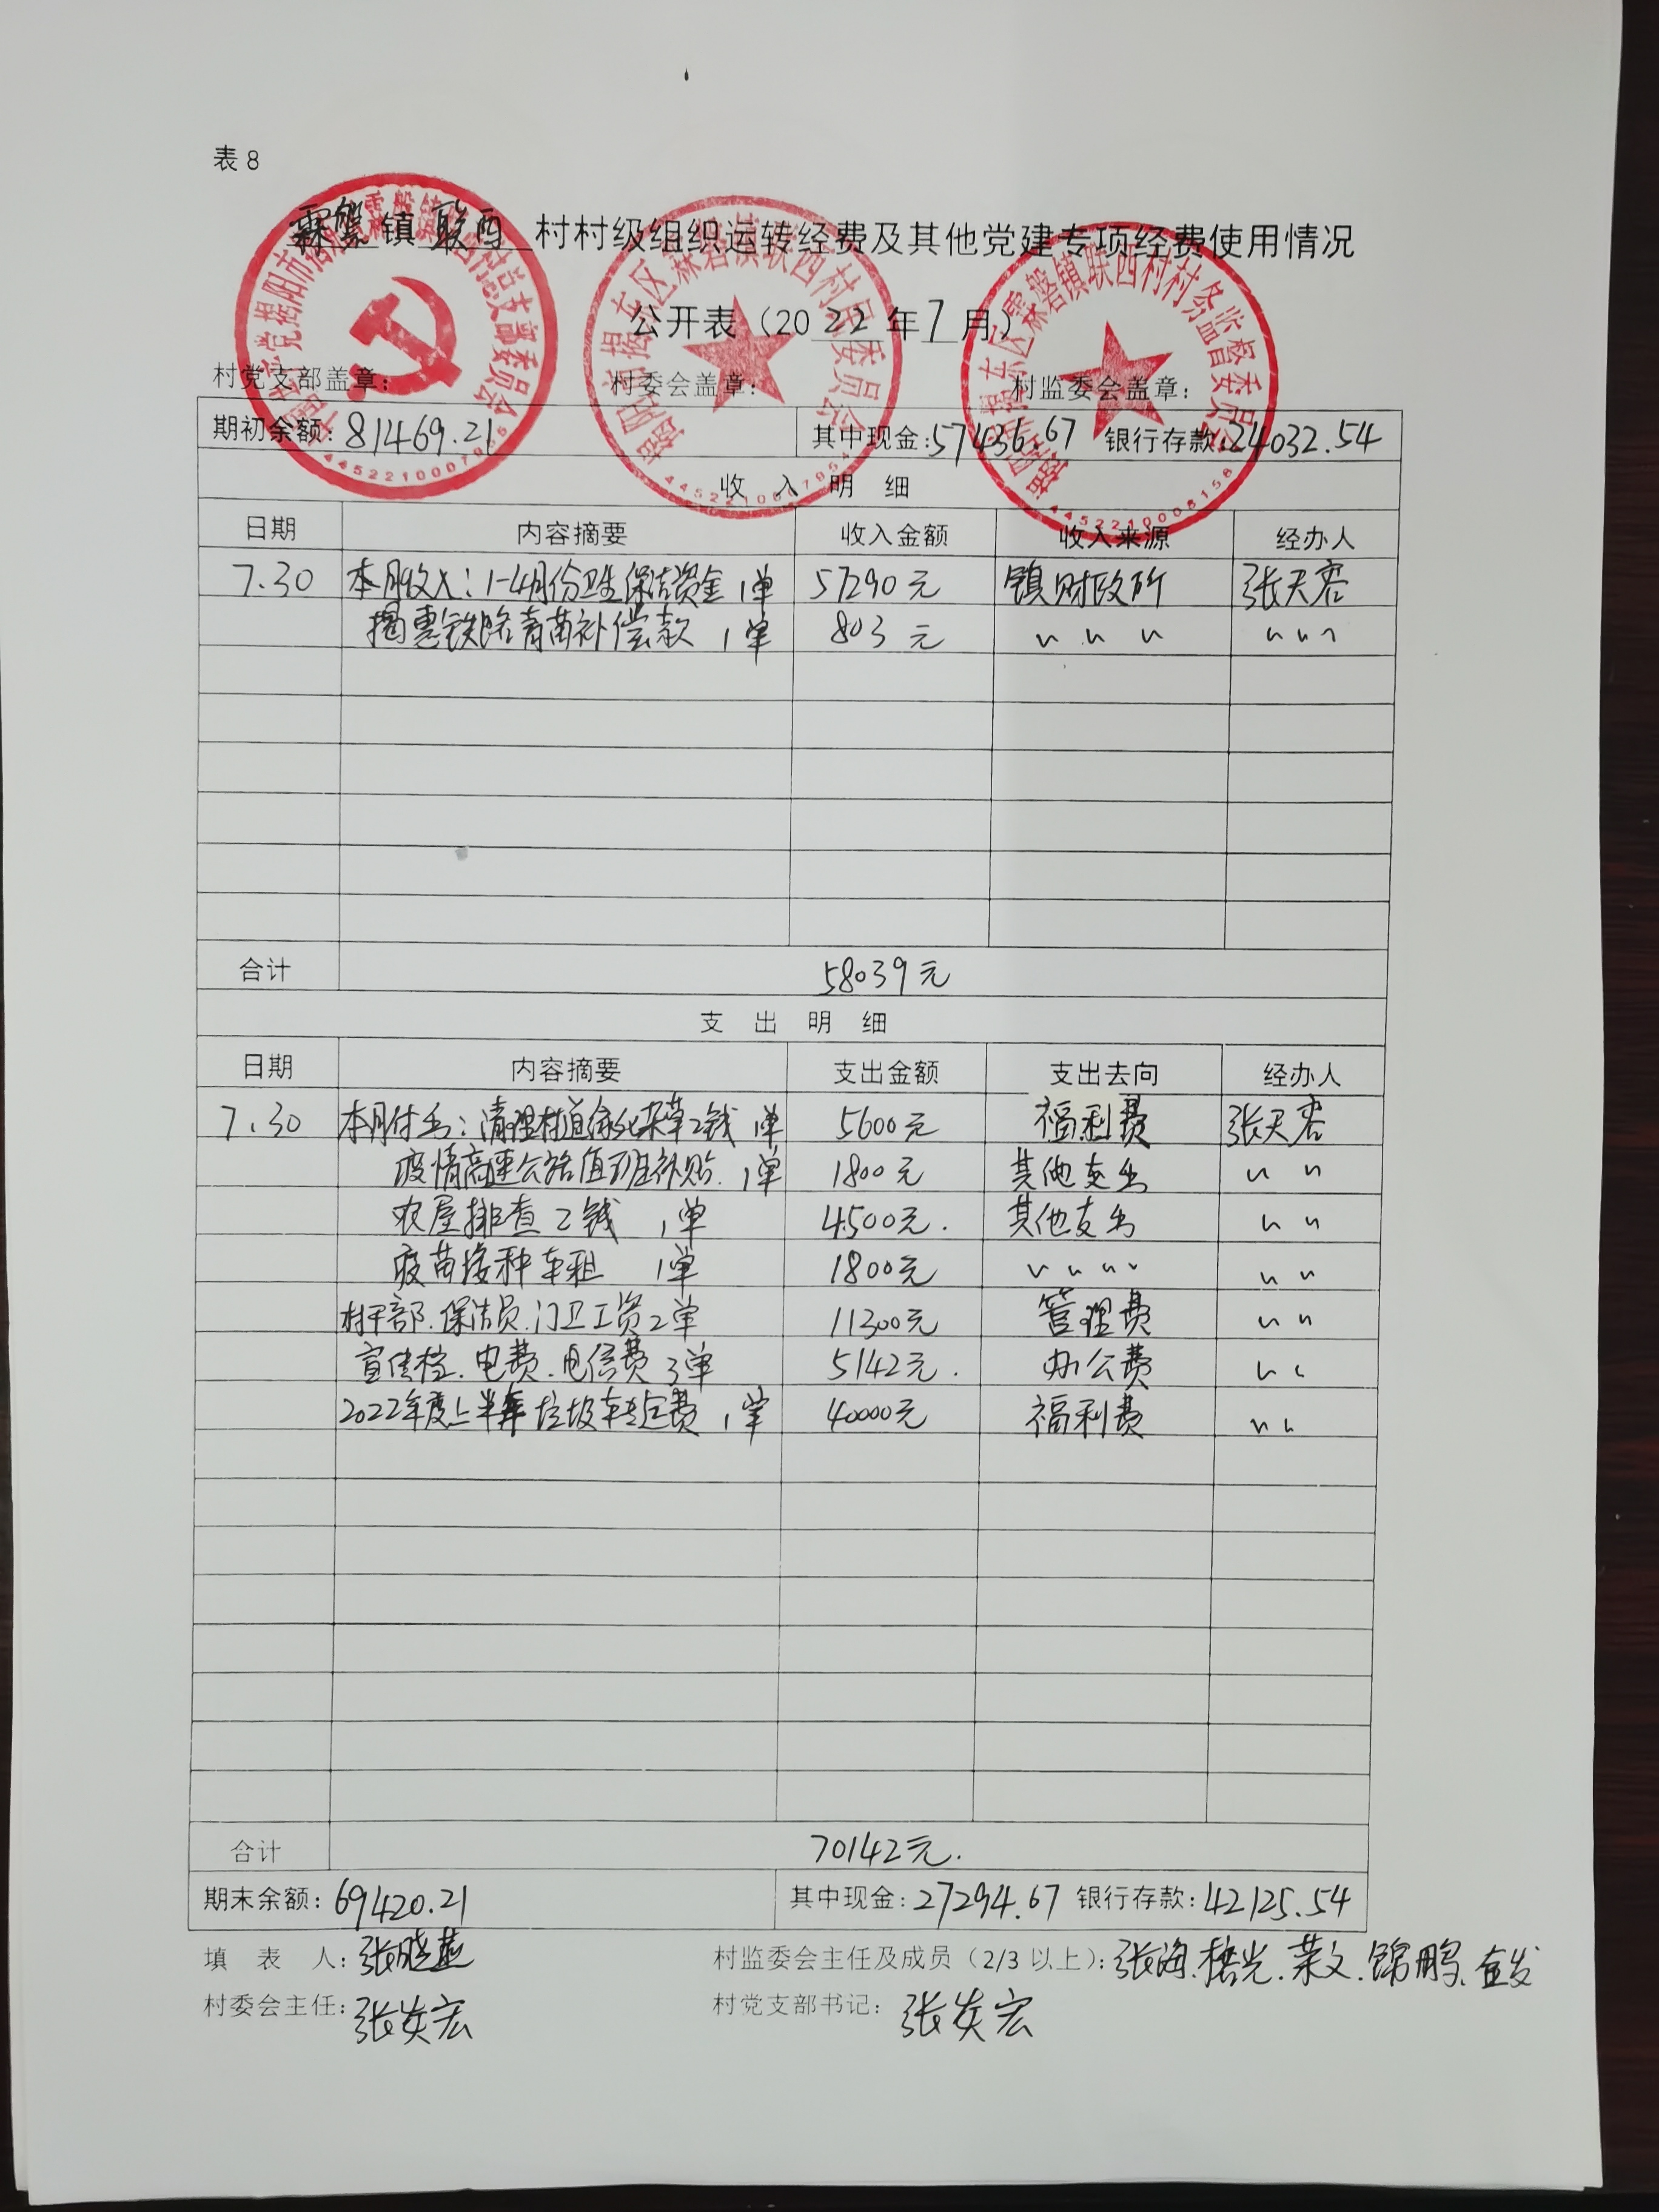 表8
霖磐镇联西村村级组织运转经费及其他党建专项经费使用情况
公开表（2022年7月）
村党支部盖章： 村委会盖章： 村监委会盖章：
期初余额：81469.21 其中现金：57436.67 银行存款：24032.54
收 入 明 细
日期 内容摘要 收入金额 收入来源 经办人
7.30 本月收入：1-4月份卫生保洁资金 1单 57290元 镇财政所 张天容
揭惠铁路青苗补偿款 1单 803元 〃 〃 〃 〃 〃 〃
合计 58039元
支 出 明 细
日期 内容摘要 支出金额 支出去向 经办人
7.30 本月付出：清理村道绿化杂草工钱 1单 5600元 福利费 张天容
疫情高速公路值班补贴. 1单 1800元 其他支出 〃 〃
农屋排查工钱 1单 4500元. 其他支出 〃 〃
疫苗接种车租 1单 1800元 〃 〃 〃 〃 〃 〃
村干部.保洁员.门卫工资2单 11300元 管理费 〃 〃
宣传栏.电费.电信费 3单 5142元. 办公费 〃 〃
2022年度上半年垃圾车转运费 1单 40000元 福利费 〃 〃
合计 70142元.
期末余额：69420.21 其中现金：27294.67 银行存款：42125.54
填 表 人：张晓燕 村监委会主任及成员（2/3以上）：张海.楷光.荣文.锦鹏.
村委会主任：张炎宏 村党支部书记：张炎宏